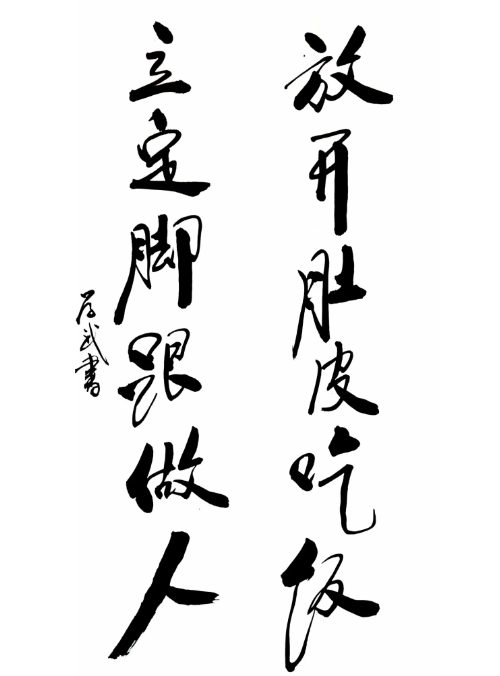 放开肚皮吃饭
立定脚跟做人